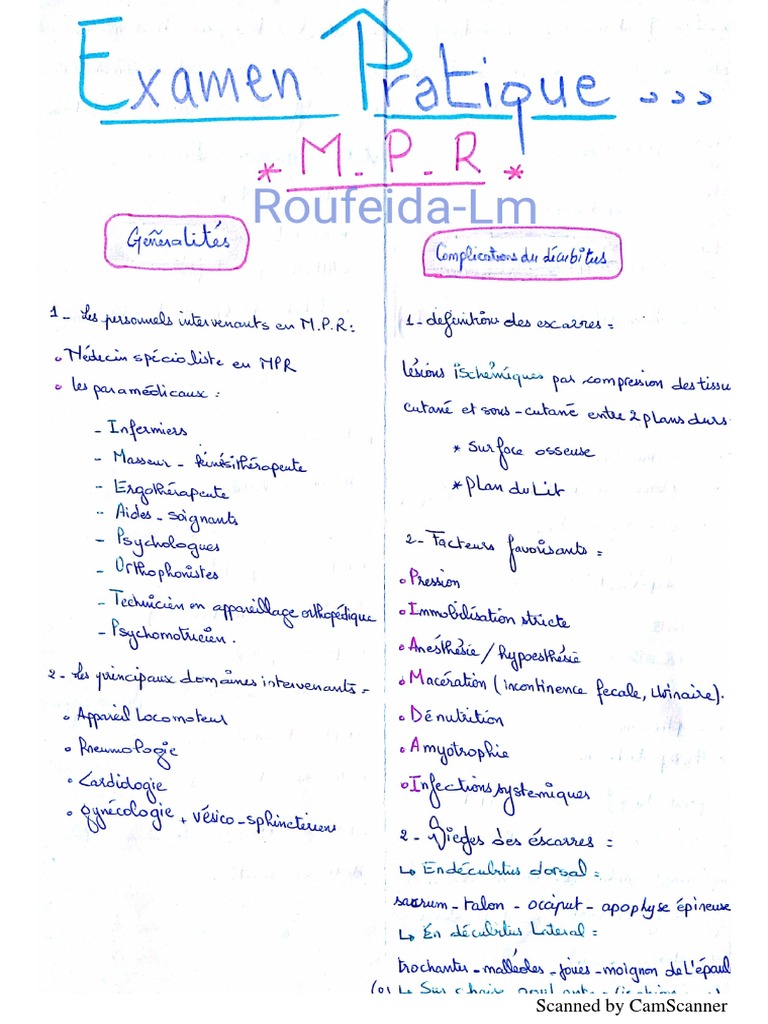 Examen Pratique ...
* M.P.R *
Roufeida-Lm
Généralités
1 - Les personnels intervenants en M.P.R :
Médecin spécialiste en MPR
les paramédicaux :
- Infermiers
- Masseur - kinésithérapeute
- Ergothérapeute
- Aides - soignants
- Psychologues
- Orthophonistes
- Technicien en appareillage orthopédique
- Psychomotricien.
2 - Les principaux domaines intervenants =
Appareil Locomoteur
Pneumologie
Cardiologie
gynécologie + vésico - sphinctériens
Complications du décubitus
1 - définition des escarres =
lésions ischémiques par compression des tissu
cutané et sous - cutané entre 2 plans durs
* surface osseuse
* plan du Lit
2 - Facteurs favorisants =
Pression
Immobilisation stricte
Anésthésie / hypoesthésie
Macération (incontinence fecale, Urinaire).
Dénutrition
Amyotrophie
Infections systemiques
2 - Sieges des éscarres =
↳ En décubitus dorsal =
sacrum - talon - occiput - apophyse épineuse
↳ En décubitus Lateral =
trochanter - malléoles - joues - moignon de L'épaul
↳ Sur chaise
Scanned by CamScanner